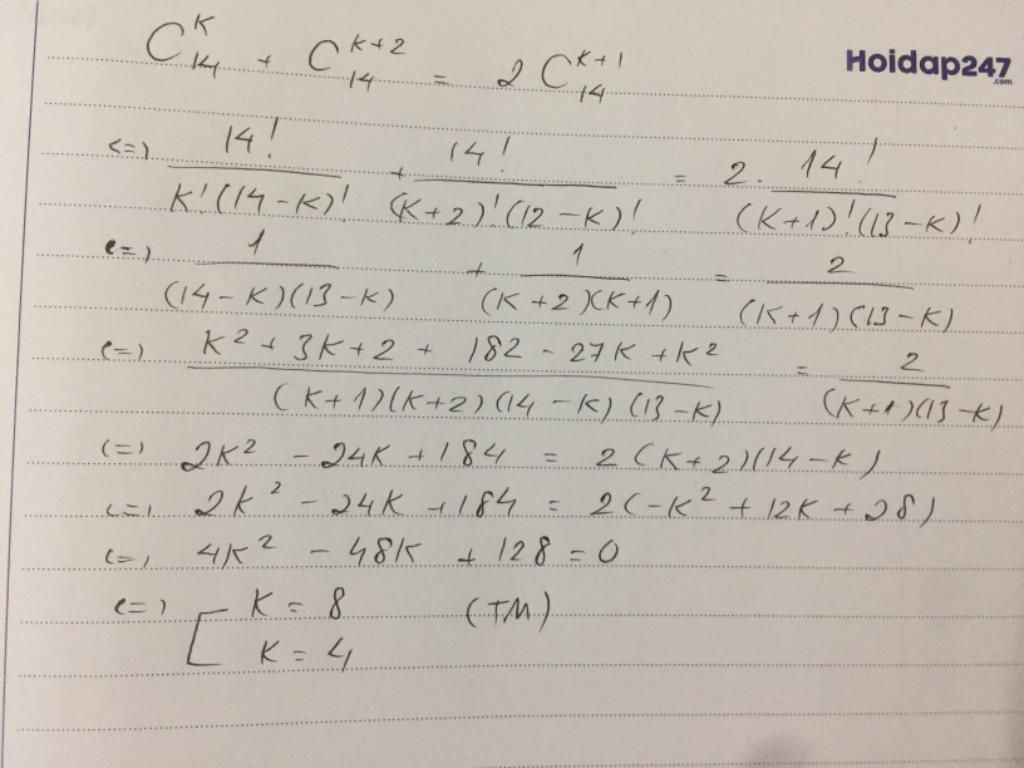 C_{14}^{K} + C_{14}^{K+2} = 2 C_{14}^{K+1}
Hoidap247
.com
<=> 14!/(K!(14-K)!) + 14!/((K+2)!(12-K)!) = 2. 14!/((K+1)!(13-K)!)
<=> 1/((14-K)(13-K)) + 1/((K+2)(K+1)) = 2/((K+1)(13-K))
<=> (K² + 3K + 2 + 182 - 27K + K²)/((K+1)(K+2)(14-K)(13-K)) = 2/((K+1)(13-K))
<=> 2K² - 24K + 184 = 2(K+2)(14-K)
<=> 2K² - 24K + 184 = 2(-K² + 12K + 28)
<=> 4K² - 48K + 128 = 0
<=> [ K = 8 (TM)
K = 4